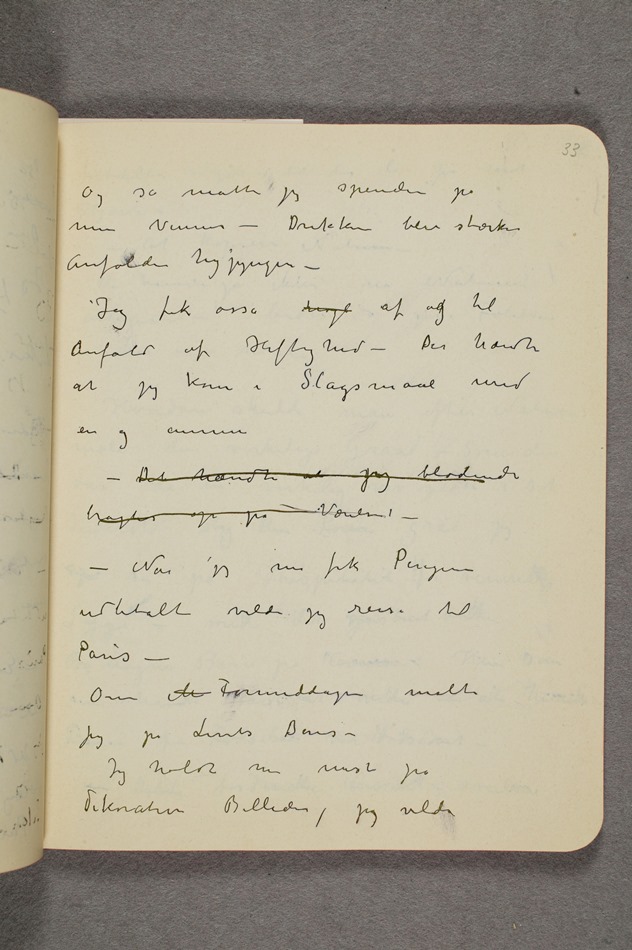 33
Og så måtte jeg spenderе på
mine Venner — Drikken blev stærkere
Anfaldene hyppigere —
Jeg fik også af og til
Anfald af Hæftighed — Det hændte
at jeg kom i Slagsmaal med
en og annen
— Det hændte at jeg blødende
bragtes op på Værelset —
— Når jeg nu fik Pengene
udbetalt vilde jeg reise til
Paris —
Om Formiddagen malte
jeg på Linds Bans —
Jeg holdt nu mest på
dekorative Billeder, jeg vilde